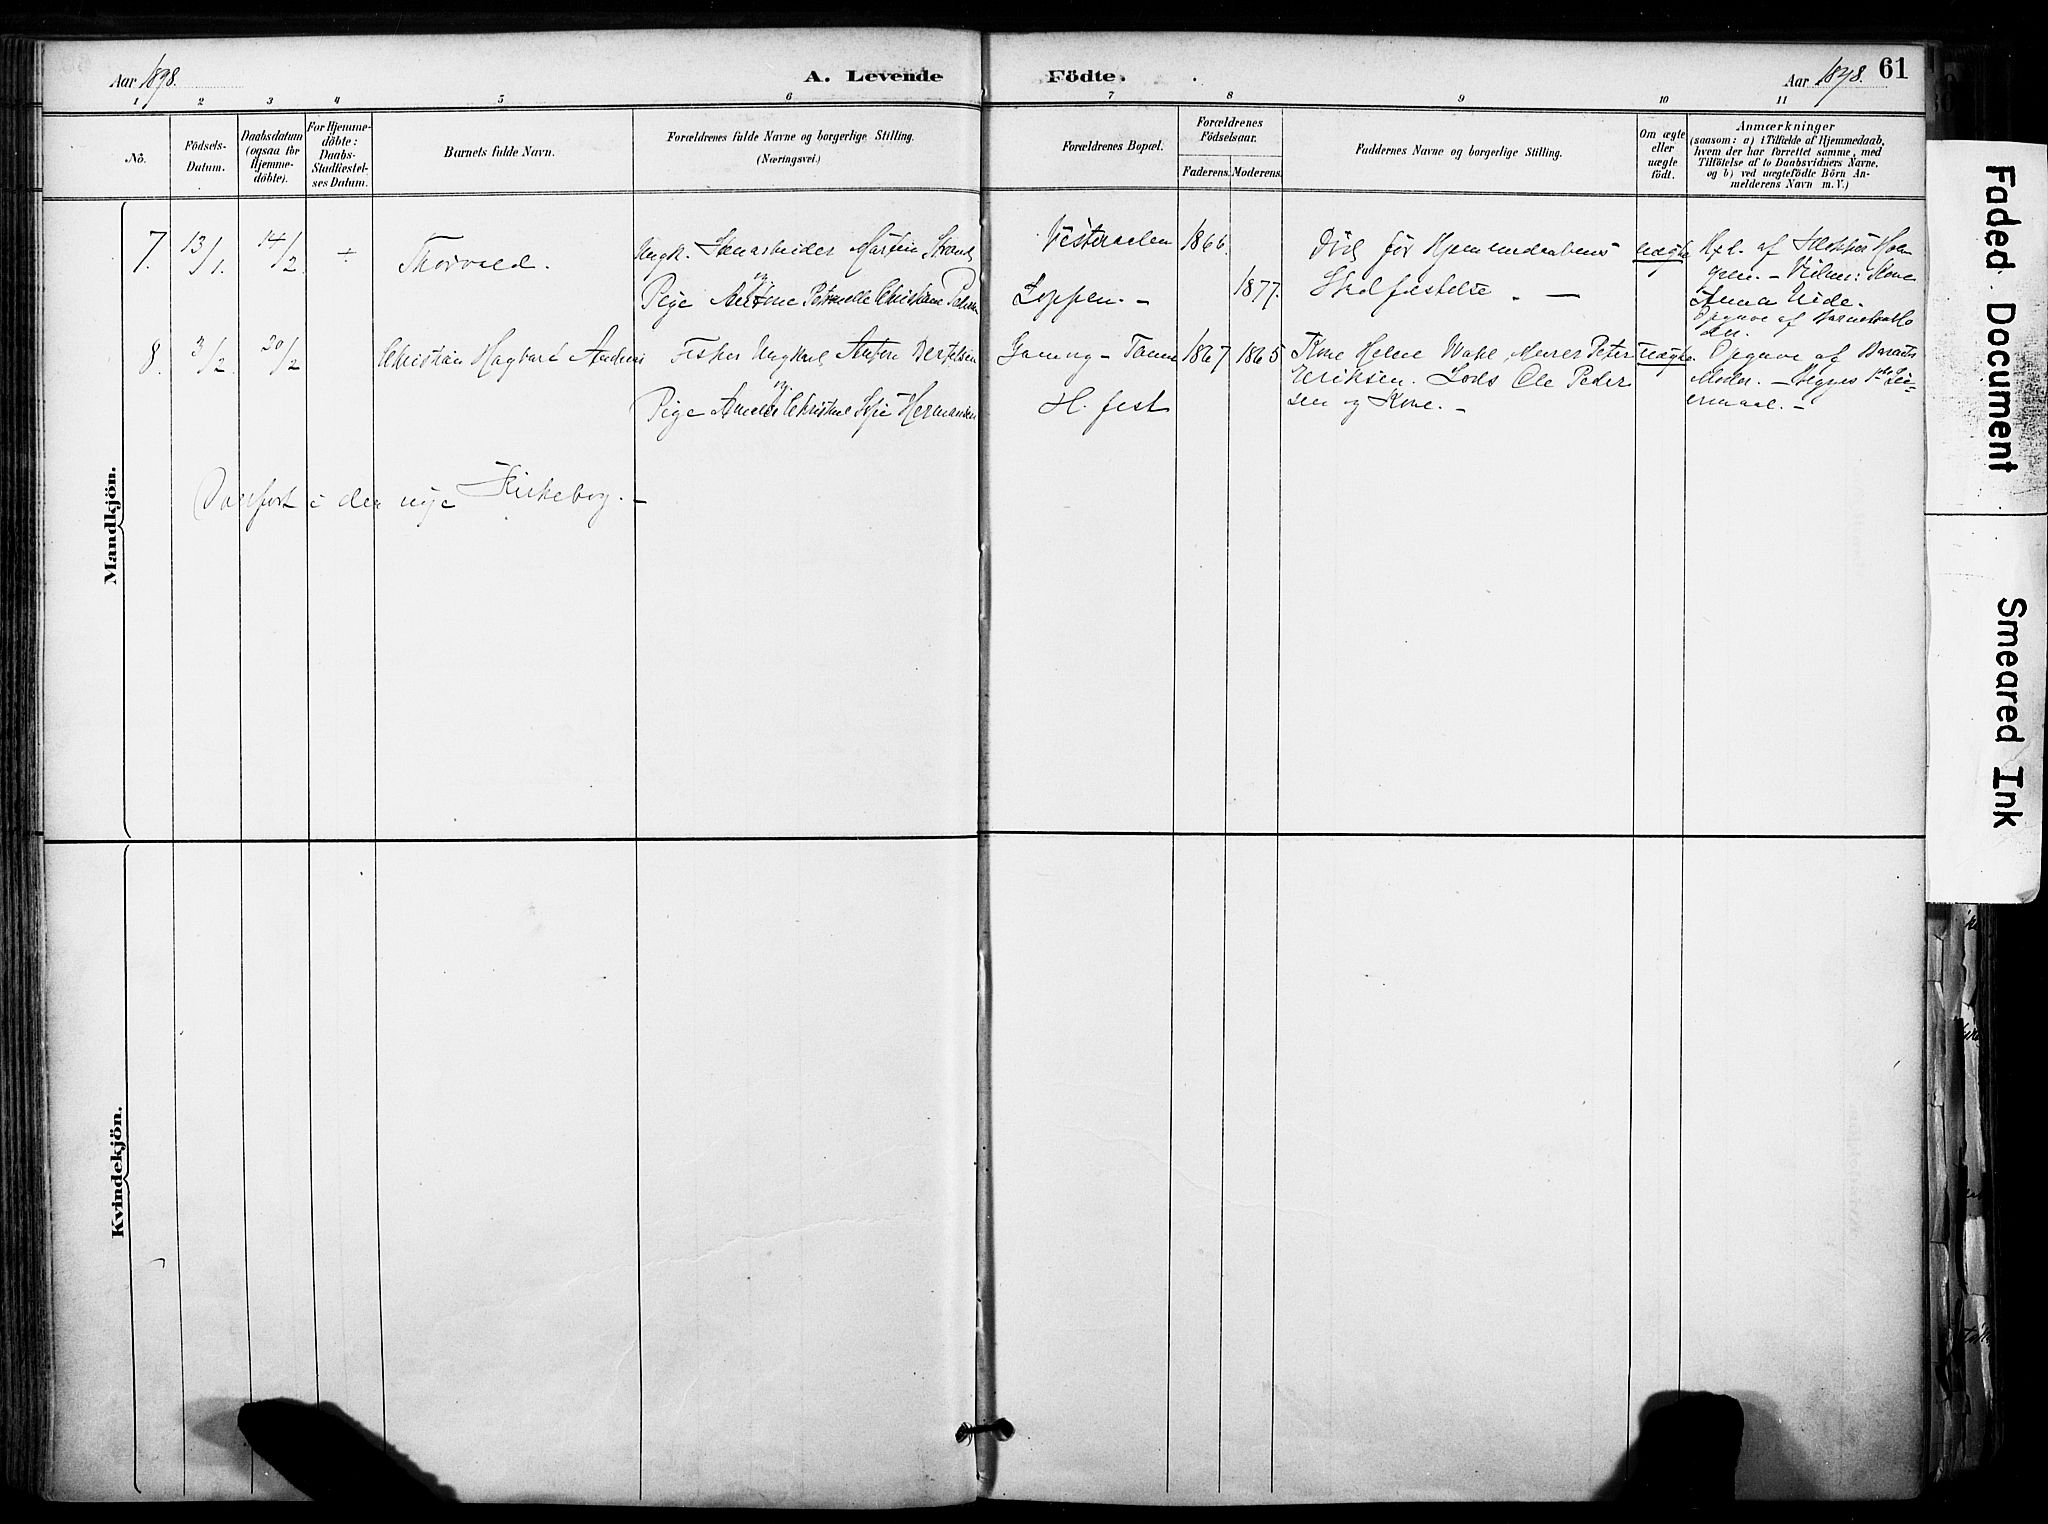 Aar 1898.
A. Levende Födte.
Aar 1898.
61
1 2 3 4 5 6 7 8 9 10 11
No.
Födsels-
Datum.
Daabsdatum
(ogsaa for
Hjemme-
döbte).
For Hjemme-
döbte:
Daabs-
Stadfæstel-
ses Datum.
Barnets fulde Navn.
Forældrenes fulde Navne og borgerlige Stilling.
(Næringsvei.)
Forældrenes Bopæl.
Forældrenes
Födselsaar.
Faderens. Moderens.
Faddernes Navne og borgerlige Stilling.
Om ægte
eller
uægte
födt.
Anmærkninger
(saasom: a) i Tilfælde af Hjemmedaab,
hvem der har forrettet samme, med
Tilföielse af to Daabsvidners Navne,
og b) ved uægtefödte Börn An-
melderens Navn m. V.)
Mandkjön.
7. 13/1. 14/2 ÷ Thorvald.
Ungk. Martin Strand
Pige Petrnelle Christine
Vesteraalen
Loppen. –
1866.
1877.
Död før Hjemmedaabens
Stadfæstelse. —
uægte
af
Anna
Opgave af
8. 3/2. 20/2 Christian Hagbart
Fisker Ungkarl
Pige Sofie Hermansen
H.fest
1867 1865
Kone Helene Wahl, Peter
Eriksen. Lods Ole Peder
sen og Kone. –
uægte.
Opgave af Barnets
Moder. –
ermaal. –
i den nye Kirkebog. –
Kvindekjön.
Faded Document
Smeared Ink